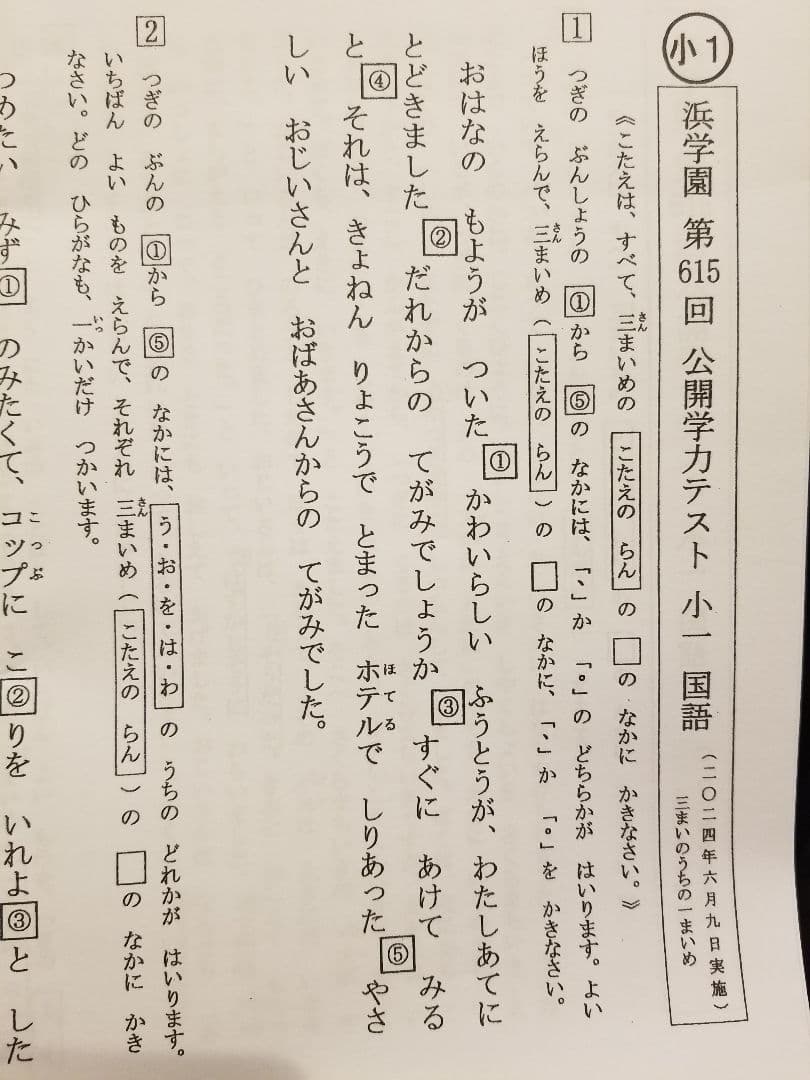 小1
浜学園 第615回 公開学力テスト 小一 国語
(二〇二四年六月九日実施)
三まいのうちの一まいめ
《こたえは、すべて、三まいめの こたえの らん の □の なかに かきなさい。》
さん
1 つぎの ぶんしょうの ①から ⑤の なかには、「、」か 「。」の どちらかが はいります。よい
ほうを えらんで、三まいめ(こたえの らん)の □の なかに、「、」か 「。」を かきなさい。
さん
おはなの もようが ついた① かわいらしい ふうとうが、わたしあてに
とどきました② だれからの てがみでしょうか③ すぐに あけて みる
と④ それは、きょねん りょこうで とまった ホテルで しりあった⑤ やさ
ほてる
しい おじいさんと おばあさんからの てがみでした。
2 つぎの ぶんの ①から ⑤の なかには、う・お・を・は・わ の うちの どれかが はいります。
いちばん よい ものを えらんで、それぞれ 三まいめ(こたえの らん)の □の なかに かき
さん
なさい。どの ひらがなも、一かいだけ つかいます。
いっ
つめたい みず① のみたくて、コップに こ②りを いれよ③と した
こっぷ